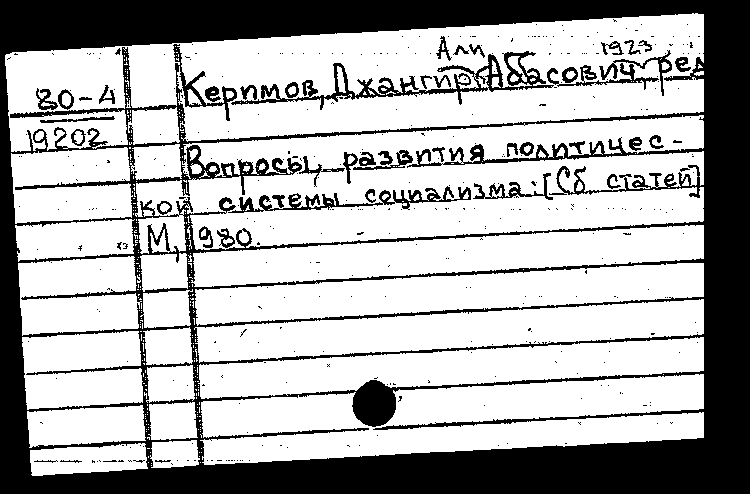 Али 1923
80-4 Керимов, Джангир Аббасович, ред
19202
Вопросы, развития политичес-
кой системы социализма: [Сб статей]
М, 1980.